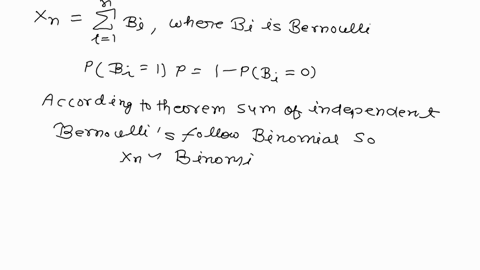 Xn = n∑i=1 Bi, where Bi is Bernoulli
P(Bi = 1) P = 1 - P(Bi = 0)
According to theorem sum of independent
Bernoulli's follow Binomial so
Xn ~ Binomi